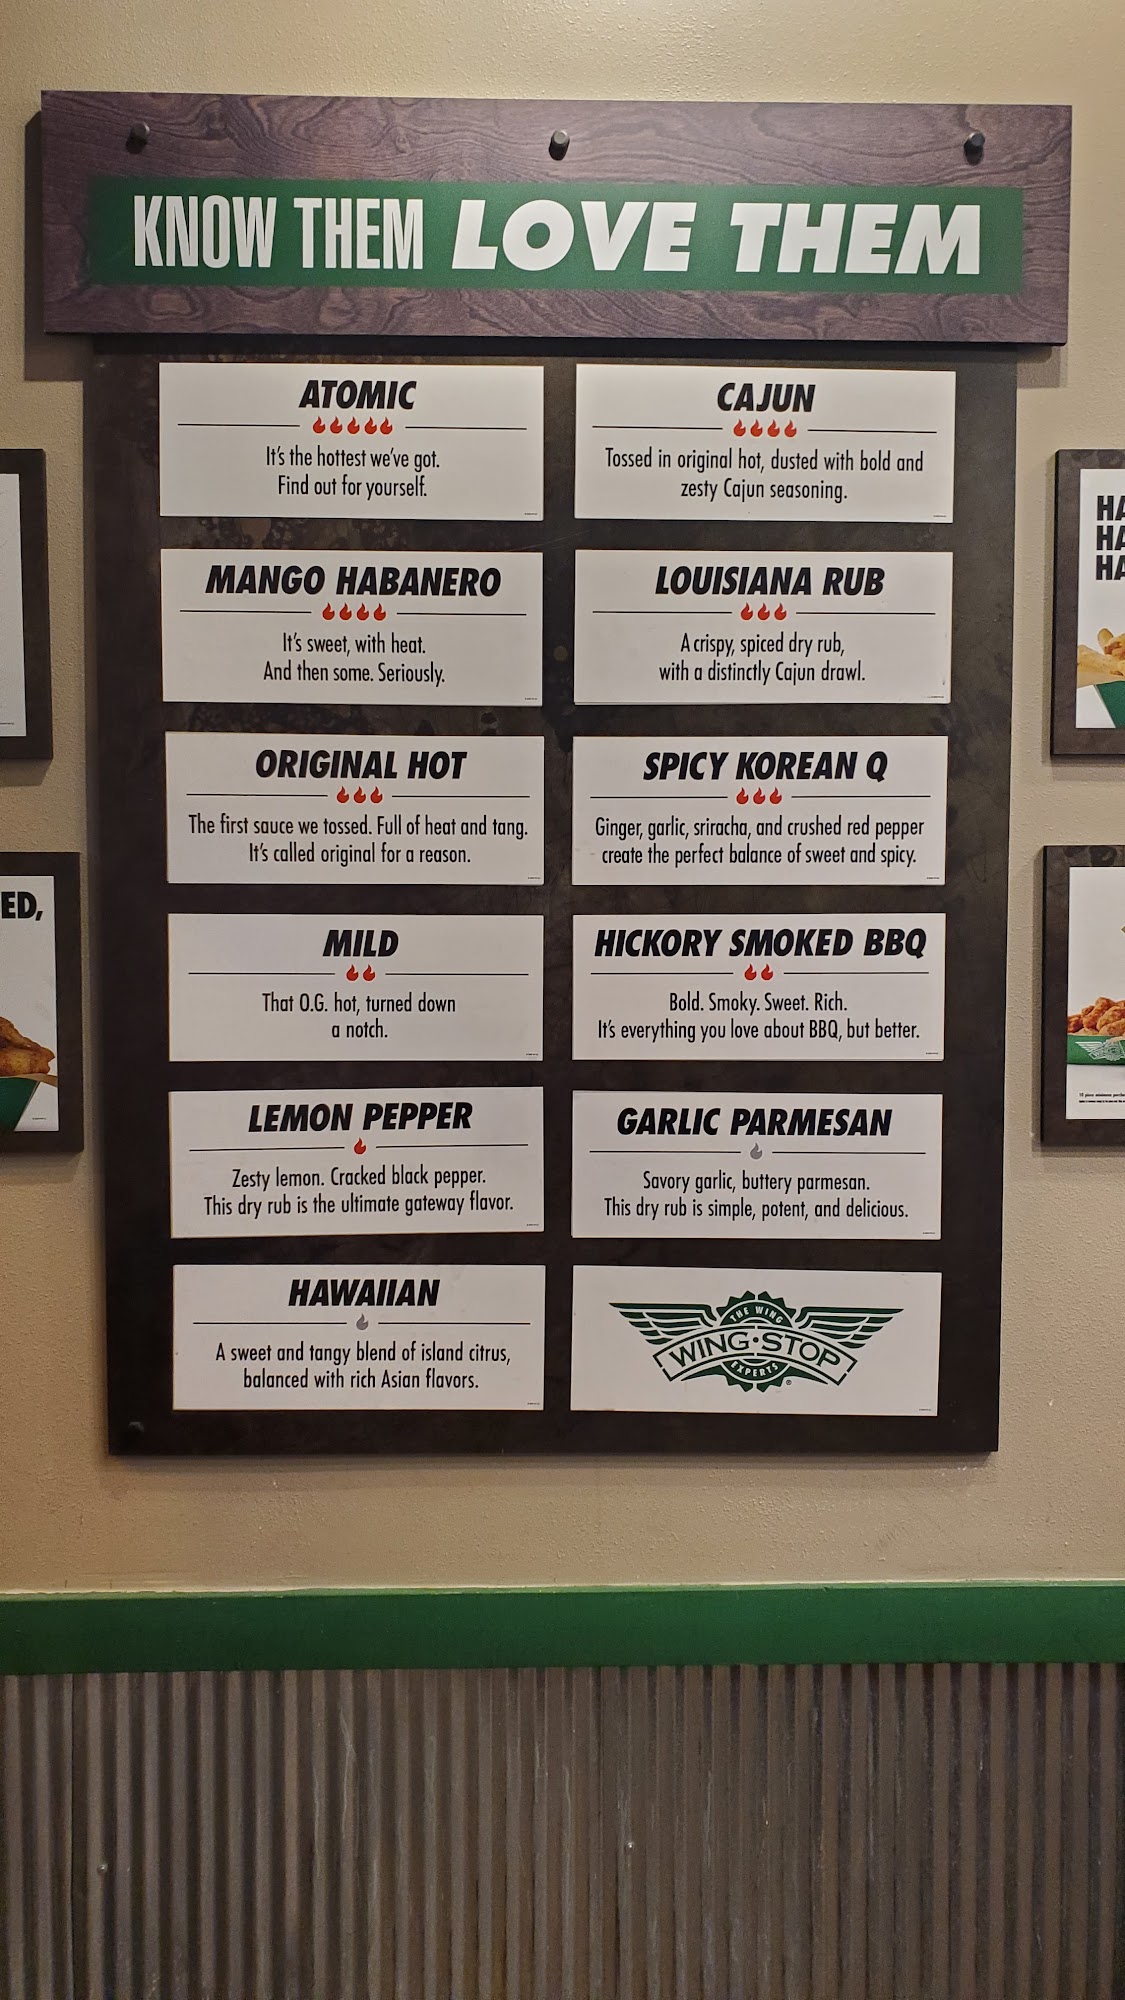 KNOW THEM LOVE THEM
ATOMIC
It's the hottest we've got.
Find out for yourself.
CAJUN
Tossed in original hot, dusted with bold and
zesty Cajun seasoning.
MANGO HABANERO
It's sweet, with heat.
And then some. Seriously.
LOUISIANA RUB
A crispy, spiced dry rub,
with a distinctly Cajun drawl.
ORIGINAL HOT
The first sauce we tossed. Full of heat and tang.
It's called original for a reason.
SPICY KOREAN Q
Ginger, garlic, sriracha, and crushed red pepper
create the perfect balance of sweet and spicy.
MILD
That O.G. hot, turned down
a notch.
HICKORY SMOKED BBQ
Bold. Smoky. Sweet. Rich.
It's everything you love about BBQ, but better.
LEMON PEPPER
Zesty lemon. Cracked black pepper.
This dry rub is the ultimate gateway flavor.
GARLIC PARMESAN
Savory garlic, buttery parmesan.
This dry rub is simple, potent, and delicious.
HAWAIIAN
A sweet and tangy blend of island citrus,
balanced with rich Asian flavors.
THE WING
WING·STOP
EXPERTS
®
ED,
HA
HA
HA